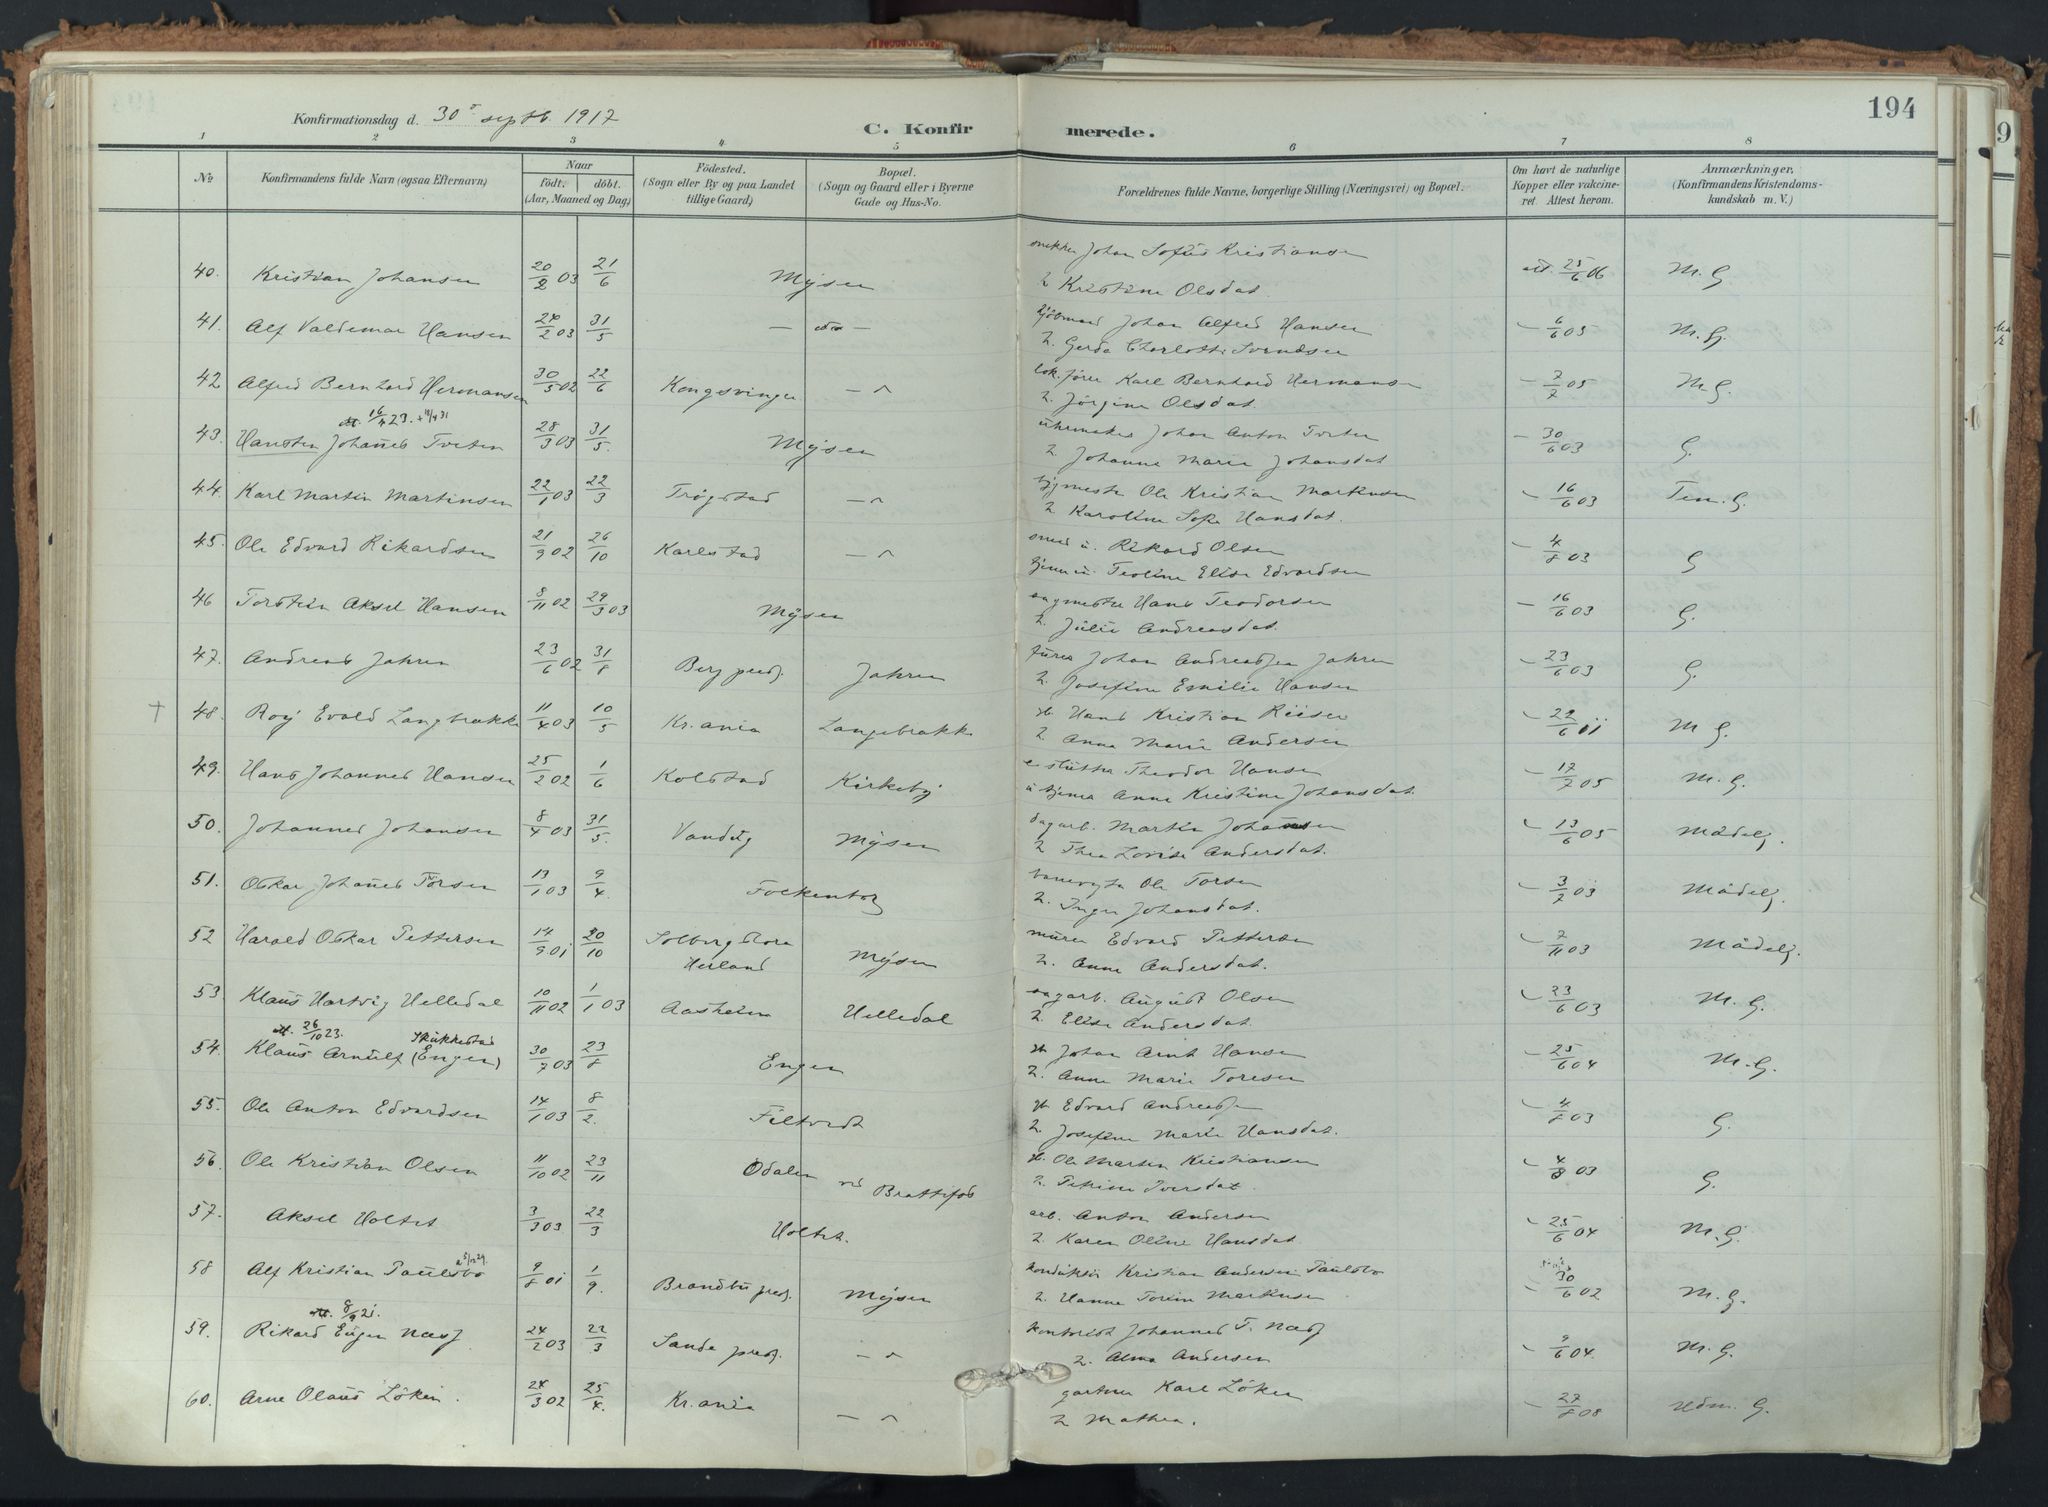 194
Konfirmationsdag d. 30 septb. 1917
C. Konfirmerede.
1 2 3 4 5 6 7 8
No
Konfirmandens fulde Navn (ogsaa Efternavn)
Naar
födt. döbt.
(Aar, Maaned og Dag)
Födested.
(Sogn eller By og paa Landet
tillige Gaard)
Bopæl.
(Sogn og Gaard eller i Byerne
Gade og Hus-No.
Forældrenes fulde Navne, borgerlige Stilling (Næringsvei) og Bopæl.
Om havt de naturlige
Kopper eller vakcine-
ret. Attest herom.
Anmærkninger.
(Konfirmandens Kristendoms-
kundskab m. V.)
snekker Johan Sofus Kristiansen
40. Kristian Johansen 20/2 03 21/6 Mysen att. 25/6 06 M. G
2 Kristine Olsdat.
41. Alf Valdemar Hansen 24/2 03 31/5 — do — Johan Alfred Hansen — 6/6 05 M. G.
2. Gerda Charlotte Svendsen
42 Alfred Bernhard Hermansen 30/5 02 22/6 Kongsvinger — " lok. förer Karl Bernhard Hermansen — 7/7 05 M G.
2. Jörgine Olsdat.
att. 16/11 23. + 18/4 31
43. Hansten Johanes Tveten 28/3 03 31/5. Mysen uhrmaker Johan Anton Tveten — 30/6 03 G.
2. Johanne Marie Johansdat
44. Karl Martin Martinsen 22/1 03 22/3 Trögstad — " Ole Kristian Markusen — 16/6 03 Tem. G.
2 Karoline Sofie Hansdat.
45. Ole Edvard Rikardsen 21/9 02 26/10 Karlstad — " smed u. Rikard Olsen — 4/8 03 G
Teoline Elise Edvardsen
46 Torstein Aksel Hansen 8/11 02 29/3 03 Mysen sagmester Hans Teodorsen — 16/6 03 G.
2. Julie Andreasdat.
47. Andreas Jahren 23/6 02 31/8 Berg pregj. Jahren furer Johan Andreassen Jahren — 23/6 03 G.
2. Josefine Emilie Hansen
† 48. Roy Evald Langbrakke 11/4 03 10/5 Kr.ania Langebrakke Hans Kristian Riiser — 22/6 11 M G.
2. Anna Marie Andersen
49. Hans Johannes Hansen 25/2 02 1/6 Kolstad Kirkeby Theodor Hansen — 17/7 05 M. G.
Anne Kristine Johansdat.
50. Johannes Johansen 8/4 03 31/5. Mysen dagarb. Martin Johansen — 13/6 05 Mådelg.
2 Thea Lovise Andersdat.
51. Oskar Johanes Torsen 13/1 03 9/4. Folkentorg banevogter Ole Torsen — 3/7 03 Mådelg.
2. Inger Johansdat.
52 Harald Oskar Pettersen 14/9 01 20/10 Solberg Nora Herland Mysen murer Edvard Pettersen — 7/11 03 Mådelg.
2. Anne Andersdat.
53. Klaus Hartvig Helledal 10/11 02 1/1 03 Aasheim Helledal sagarb. August Olsen — 23/6 03 M. G.
2. Elise Andersdat.
att. 26/10 23. Skukkestad
54. Klaus Arnulf (Engen) 30/7 03 23/8 Engen Johan Arnt Hansen — 25/6 04 M. G.
2. Anne Marie Toresen
55. Ole Anton Edvardsen 14/1 03 8/2. Filtvedt Edvard Andreassen — 4/8 03 G.
2. Josefine Marie Hansdat.
56. Ole Kristian Olsen 11/10 02 23/11 Odalen ved Brattfos Ole Martin Kristiansen — 4/8 03 G.
2. Petrine Iversdat.
57. Aksel Holtet 3/3 03 22/3 Holtet. arb. Anton Andersen — 25/6 04 M. G.
2. Karen Oline Hansdat.
58 Alf Kristian Paulsbo 9/8 01 1/9. Brandbu pregj. Mysen konduktör Kristian Andersen Paulsbo — 30/6 02 M. G.
2. Hanna Markusen
att. 8/9 21.
59. Rikard Eugen Næss 24/2 03 22/3 Sande pregj. — " kontorist Johannes T. Næss — 9/6 04. M. G.
2. Alma Andersen
60. Arne Olaus Löken. 24/3 02 25/4. Kr.ania — " gartner Karl Löken — 27/8 08 Udm. G.
2 Mathea.